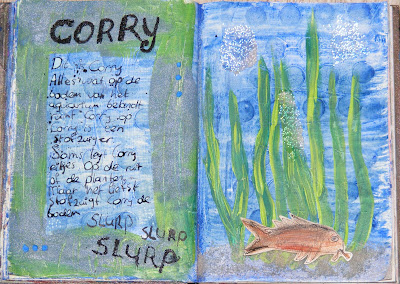 CORRY
Dit is Corry
Alles wat op de
bodem van het
aquarium belandt
ruimt Corry op
Corry is een
stofzuiger.
Soms legt Corry
eitjes op de ruit
of de planten
Maar het liefst
stofzuigt Corry de
bodem
SLURP
SLURP
SLURP